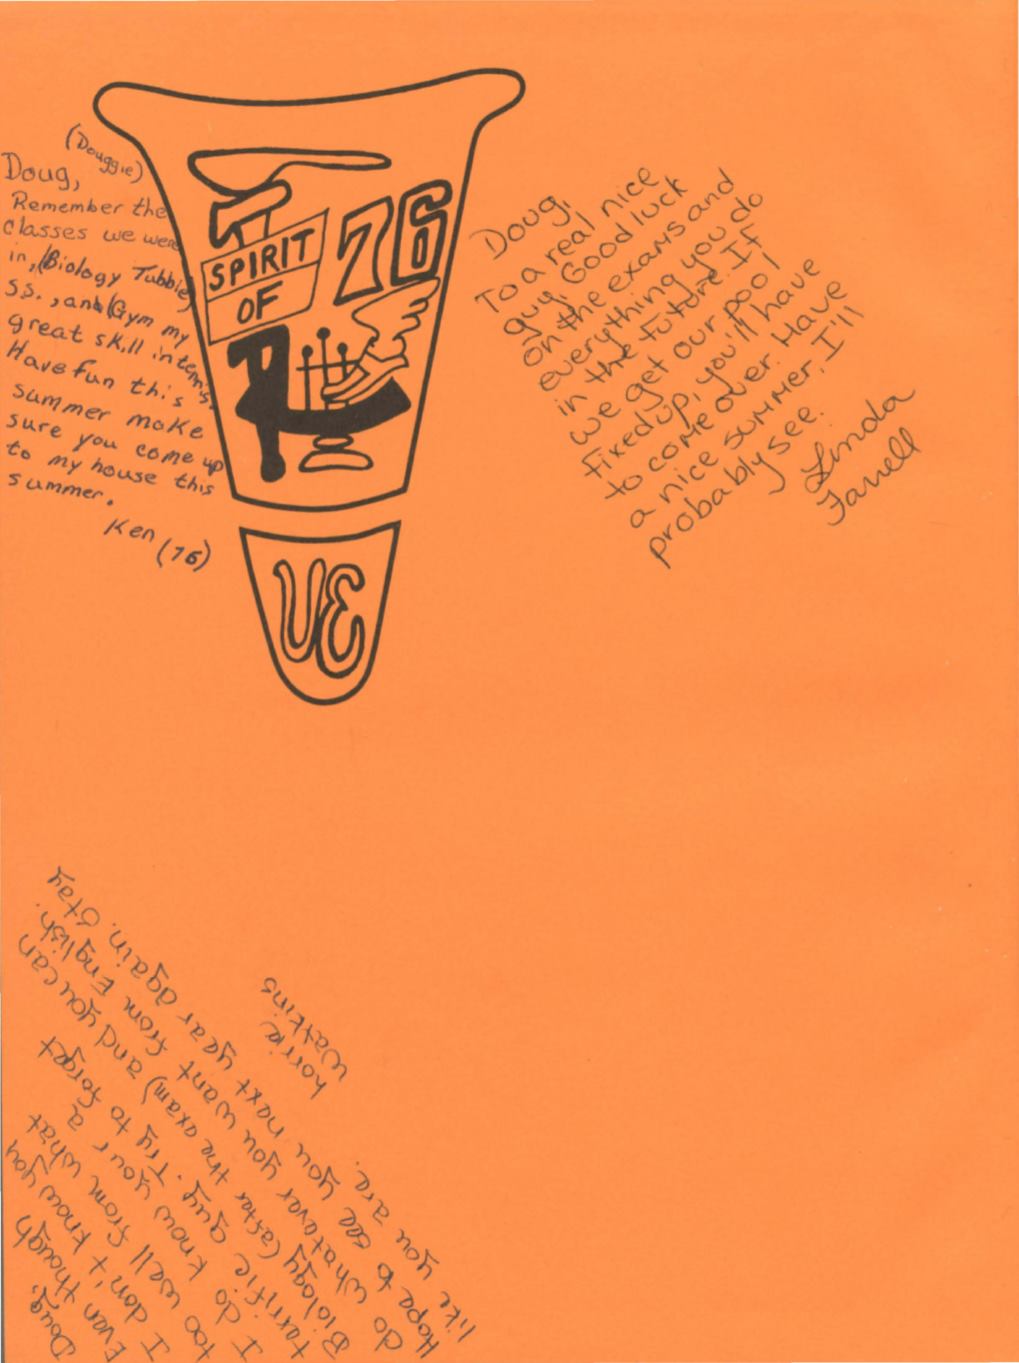 (Douggie)
Doug,
Remember the
classes we were
in, (Biology Tubbie)
S.S., and (Gym my
great skill in tennis.
Have fun this
summer make
sure you come up
to my house this
summer.
Ken (76)
SPIRIT
OF
76
UE
Doug,
To a real nice
guy. Good luck
on the exams and
everything you do
in the future. If
we get our pool
fixed up, you'll have
to come over. Have
a nice summer. I'll
probably see.
Linda
Farrell
Doug,
Even though
I don't know you
too well from what
I do know your a
terrific guy. Try to forget
Biology (after the exam) and you can
do whatever you want from English.
Hope to see you next year again. Stay
like you are.
Lorrie
Watkins